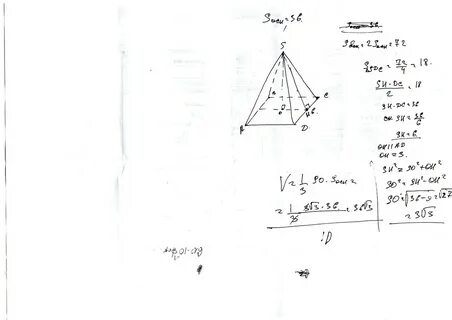 Sосн = 36
S
B
C
6
O
H
A
D
Sбок = 2Sосн = 72
S SDC = 72/4 = 18.
SH·DC/2 = 18
SH·DC = 36
SH = 36/6
SH = 6
OH || AD
OH = 3.
SH² = SO² + OH²
SO² = SH² - OH²
SO = √36-9 = √27
= 3√3
V = 1/3 SO·Sосн =
= 1/3 3√3·36 = 36√3